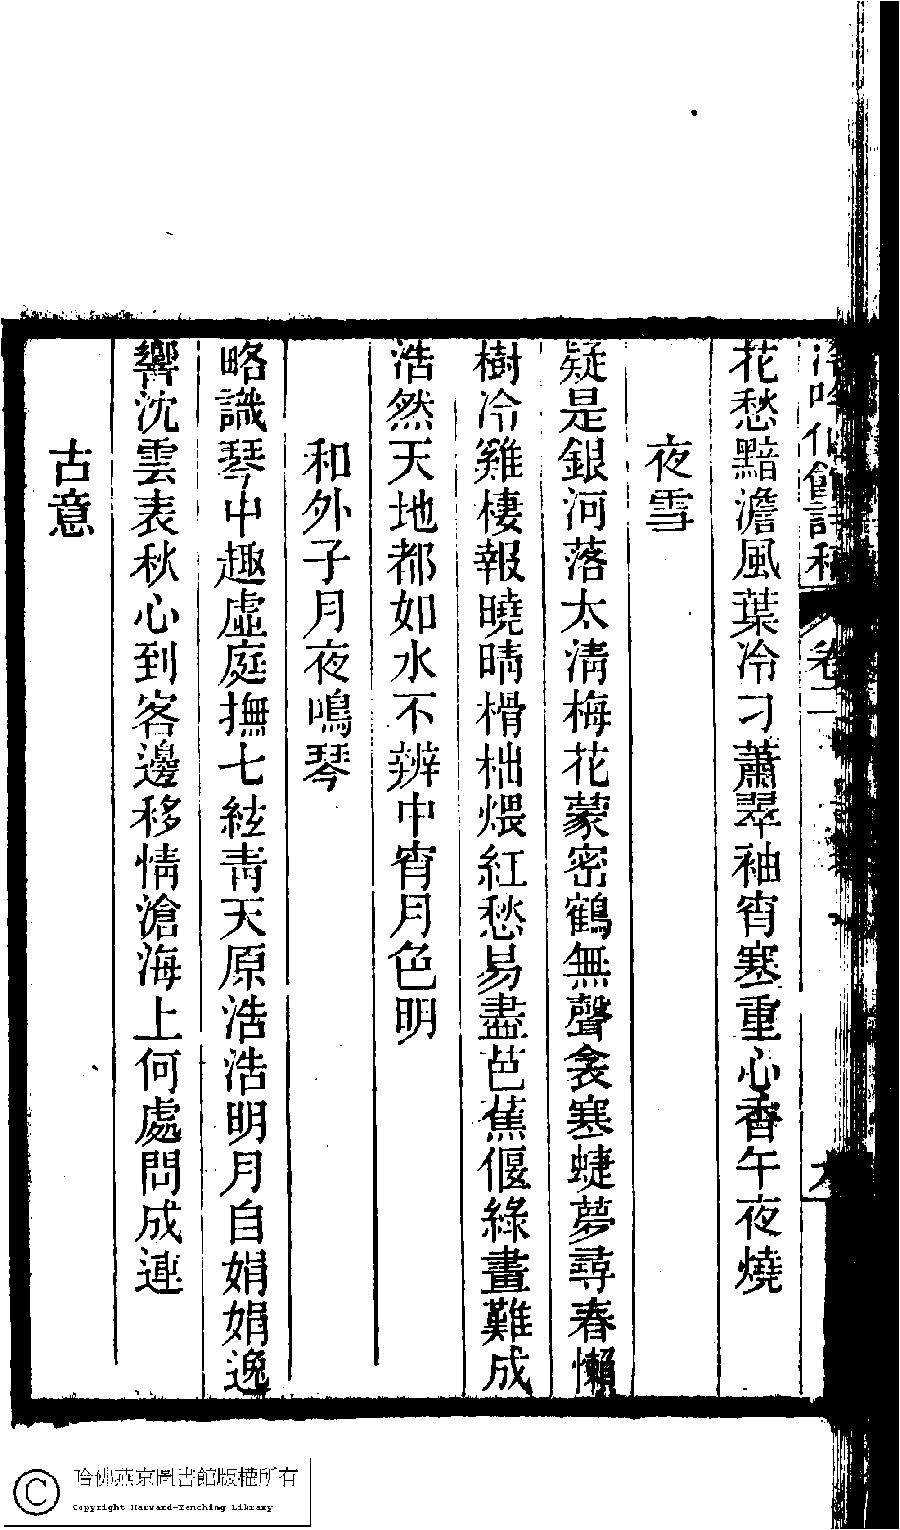 吟仙館詩稿 卷二
花愁黯澹風葉冷刁蕭翠袖宵寒重心香午夜燒
夜雪
疑是銀河落太清梅花蒙密鶴無聲衾寒蜨夢尋春懶
樹冷雞棲報曉晴榾柮煨紅愁易盡芭蕉偃綠畫難成
浩然天地都如水不辨中宵月色明
和外子月夜鳴琴
略識琴中趣虛庭撫七絃青天原浩浩明月自娟娟逸
響沈雲表秋心到客邊移情滄海上何處問成連
古意
哈佛燕京圖書館版權所有
Copyright Harvard-Yenching Library